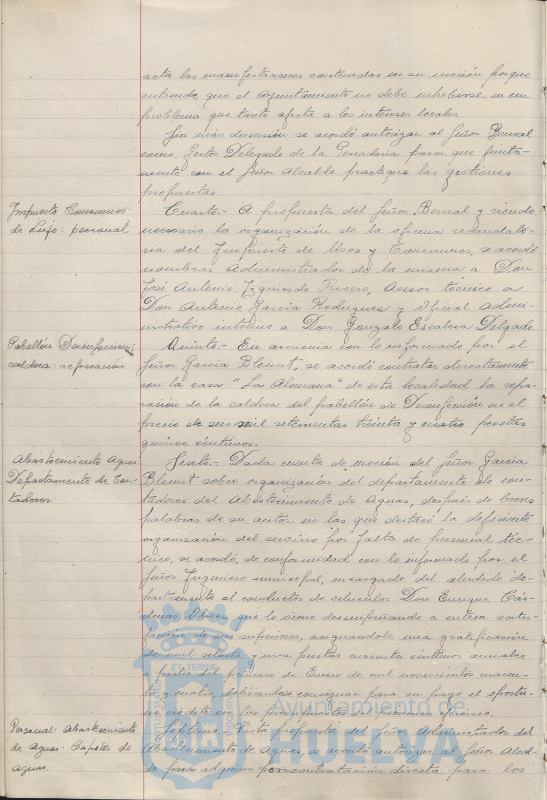 acta las manifestaciones contenidas en su moción porque
entiende que el Ayuntamiento no debe inhibirse en un
problema que tanto afecta a los intereses locales.
Sin más discusión se acordó autorizar al Señor Bernal
como Gestor Delegado de la Ganadería para que junta-
mente con el Señor Alcalde practique las gestiones
propuestas.
Impuesto Consumos
de Lujo: personal
Cuarto.- A propuesta del Señor Bernal y siendo
necesario la organización de la oficina recaudato-
ria del Impuesto de Usos y Consumos, se acordó
nombrar Administrador de la misma a Don
José Antonio Izquierdo Asesor técnico a
Don Antonio García Rodríguez y Oficial admi-
nistrativo interino a Don Gonzalo Escalera Delgado.
Pabellón Desinfección:
caldera: reparación
Quinto.- En armonía con lo informado por el
Señor García Blomet, se acordó contratar directamente
con la casa "La Alemana" de esta localidad la repa-
ración de la caldera del pabellón de Desinfección en el
precio de un mil setecientas treinta y cuatro pesetas
quince céntimos.
Abastecimiento Aguas
Departamento de Con-
tadores.
Sexto.- Dada cuenta de moción del Señor García
Blomet sobre organización del departamento de con-
tadores del Abastecimiento de Aguas, después de breves
palabras de su autor en las que destacó la deficiente
organización del servicio por falta de personal téc-
nico, se acordó, de conformidad con lo informado por el
Señor Ingeniero municipal, encargado del aludido de-
partamento al conductor de vehículos Don Enrique Cár-
denas que lo viene desempeñando a entera satis-
facción de sus superiores, asignándole una gratificación
de mil setenta y una pesetas cuarenta céntimos anuales
a partir del primero de Enero de mil novecientos cuaren-
ta y cuatro, debiéndose consignar para su pago el oportu-
no crédito en los presupuestos del próximo ejercicio.
Personal: Abastecimiento
de Aguas: Capotes de
aguas.
Séptimo.- Vista propuesta del Señor Administrador del
Abastecimiento de Aguas, se acordó autorizar al Señor Alcal-
de para adquirir por contratación directa para los
ET TERRAE
Ayuntamiento de
HUELVA